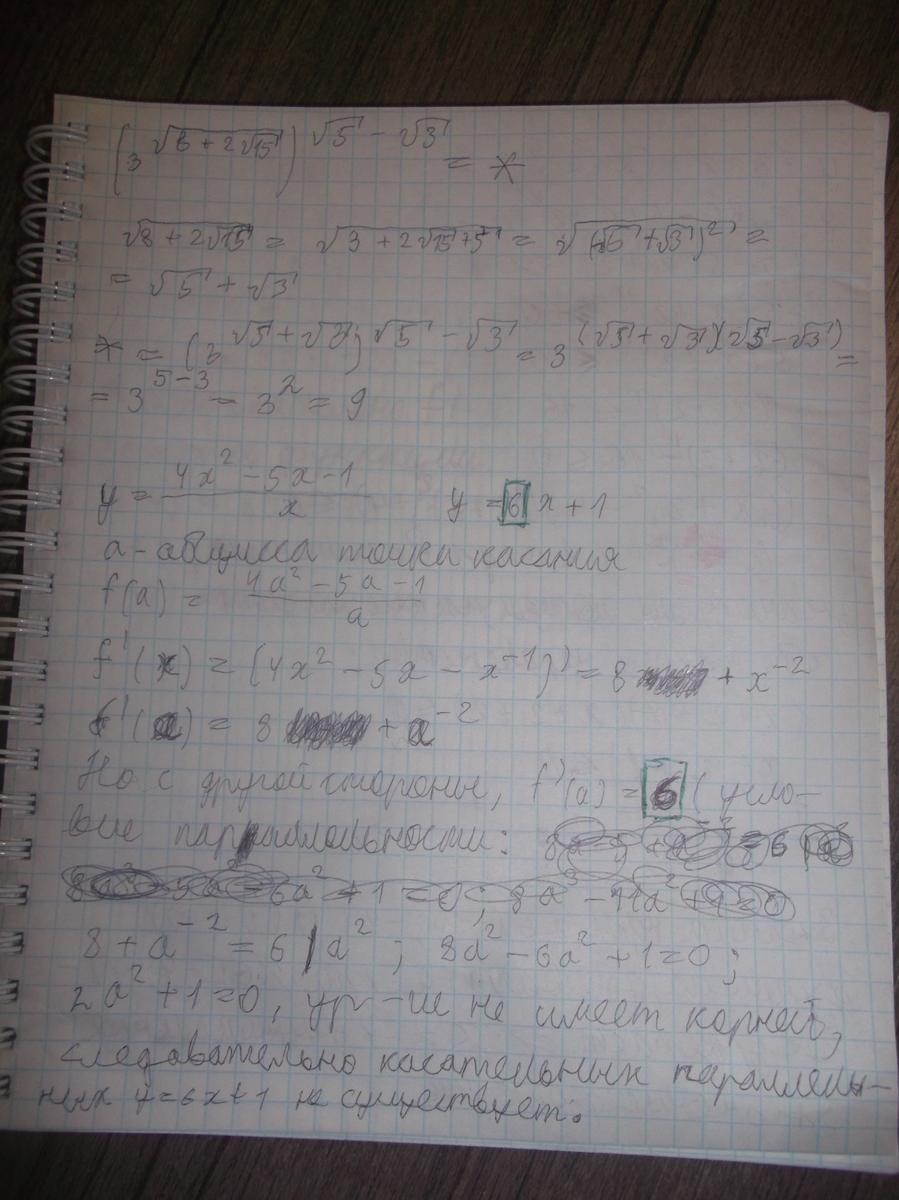 (3^√(8 + 2√15))^(√5 − √3) = *
√(8 + 2√15) = √(3 + 2√15 + 5) = √((√5 + √3)²) =
= √5 + √3
* = (3^(√5 + √3))^(√5 − √3) = 3^((√5 + √3)(√5 − √3)) =
= 3^(5−3) = 3² = 9
y = (4x² − 5x − 1)/x y = 6x + 1
a - абцисса точки касания
f(a) = (4a² − 5a − 1)/a
f'(x) = (4x² − 5x − x⁻¹)' = 8 + x⁻²
f'(a) = 8 + a⁻²
Но с другой стороны, f'(a) = 6 (усло-
вие параллельности:
8 + a⁻² = 6 | a² ; 8a² − 6a² + 1 = 0 ;
2a² + 1 = 0, ур-ие не имеет корней,
следовательно касательных параллель-
ных y = 6x + 1 не существует.